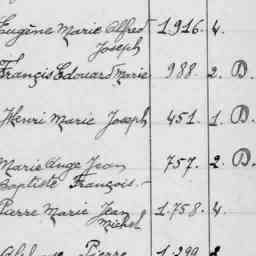 Eugène Marie Alfred 1.916. 4.
Joseph
François Edouard Marie 988. 2. D.
Henri Marie Joseph 451. 1. D.
Marie Ange Jean 757. 2. D.
Baptiste François.-
Pierre Marie Jean 1.758. 4.
Michel
Pierre 1.299.